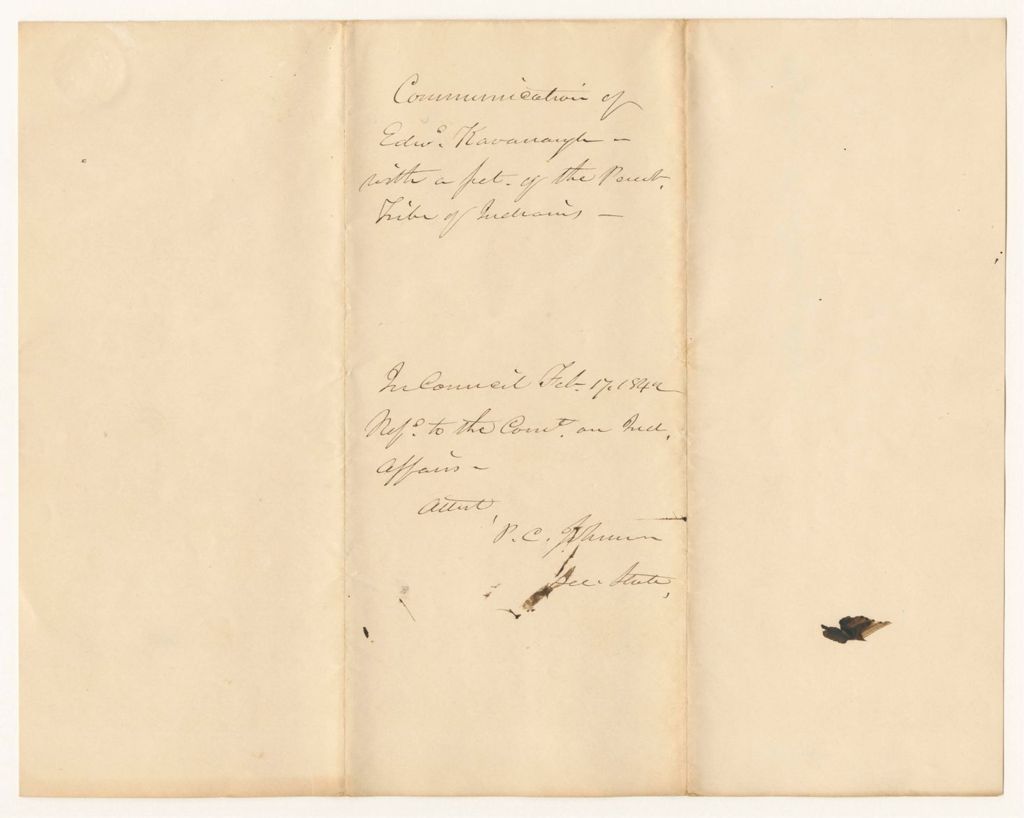 Communication of
Edwd. Kavanagh –
with a pet. of the Penob.
Tribe of Indians –
In Council Feb. 17, 1842
Refd. to the Comt. on Ind.
Affairs –
Attest,
P. C. Johnson
Sec. State,